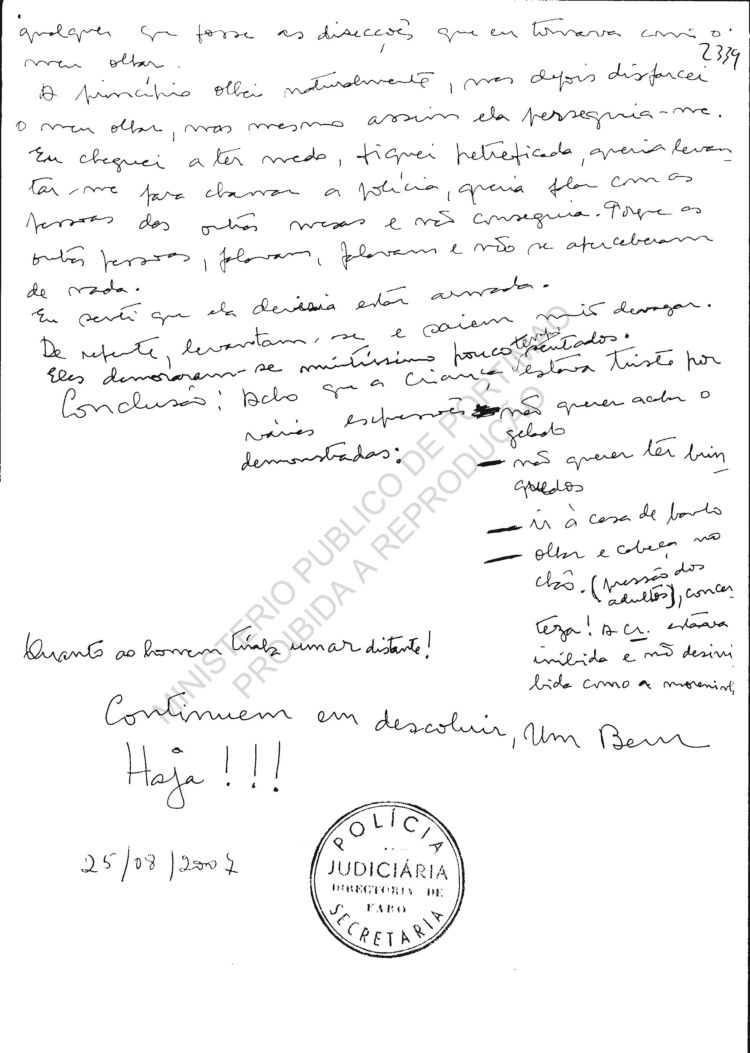 qualquer que fosse as disecções que eu tomava com o
2339
meu olhar.
A princípio olhei naturalmente, mas depois disfarcei
o meu olhar, mas mesmo assim ela perseguia-me.
Eu cheguei a ter medo, fiquei petreficada, queria levan-
tar-me para chamar a polícia, queria falar com as
pessoas das outras mesas e não conseguia. Porque as
outras pessoas, falavam, falavam e não se aperceberam
de nada.
Eu senti que ela deveria estar armada.
De repente, levantam-se e saiem mtº devagar.
Eles demoraram-se muitíssimo pouco tempo sentados.
Conclusão: Acho que a criança estava triste por
várias expressões
demonstradas:
— não querer o
gelado
— não querer ter brin
quedos
— ir à casa de banho
— olhar e cabeça no
chão. (pressão dos
adultos), concer
teza! A cr. estava
inibida e não desini
bida como a
Quanto ao homem tinha um ar distante!
Continuem em descobrir, Um Bem
Haja!!!
25/08/2007
POLÍCIA
JUDICIÁRIA
DIRECTORIA DE
FARO
SECRETARIA
MINISTERIO PUBLICO DE PORTIMAO
PROIBIDA A REPRODUÇÃO